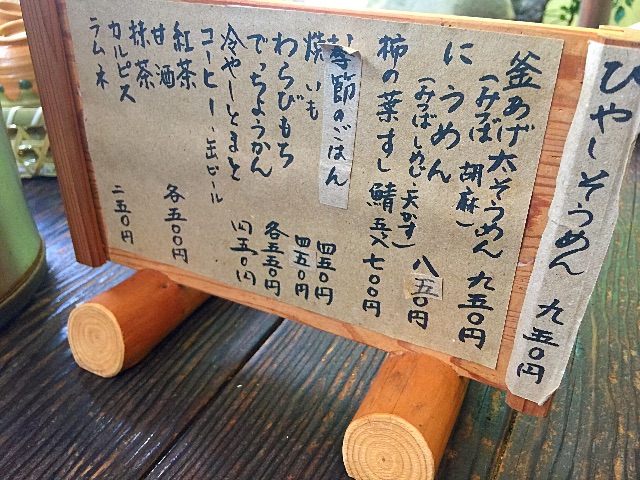 ひやしそうめん 九五〇円
釜あげ太そうめん 九五〇円
(みつば 胡麻)
にうめん 八五〇円
(みつば しめじ・天かす)
柿の葉すし 鯖五ヶ 七〇〇円
季節のごはん 四五〇円
焼いも 四五〇円
わらびもち
でっちようかん 各五五〇円
冷やしとまと 四五〇円
コーヒー、缶ビール
紅茶
甘酒 各五〇〇円
抹茶
カルピス
ラムネ 二五〇円